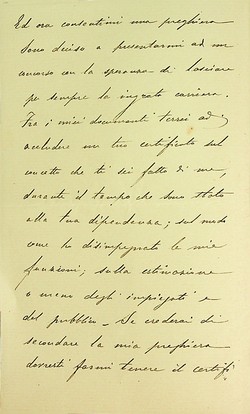 Ed ora consentimi una preghiera
Sono deciso a presentarmi ad un
concorso con la speranza di lasciare
per sempre la ingrata carriera.
Fra i miei documenti terrei ad
accludere un tuo certificato sul
concetto che ti sei fatto di me,
durante il tempo che sono stato
alla tua dipendenza; sul modo
come ho disimpegnato le mie
funzioni; sulla estimazione
o meno degli impiegati e
del pubblico - Se crederai di
secondare la mia preghiera
dovresti farmi tenere il certifi